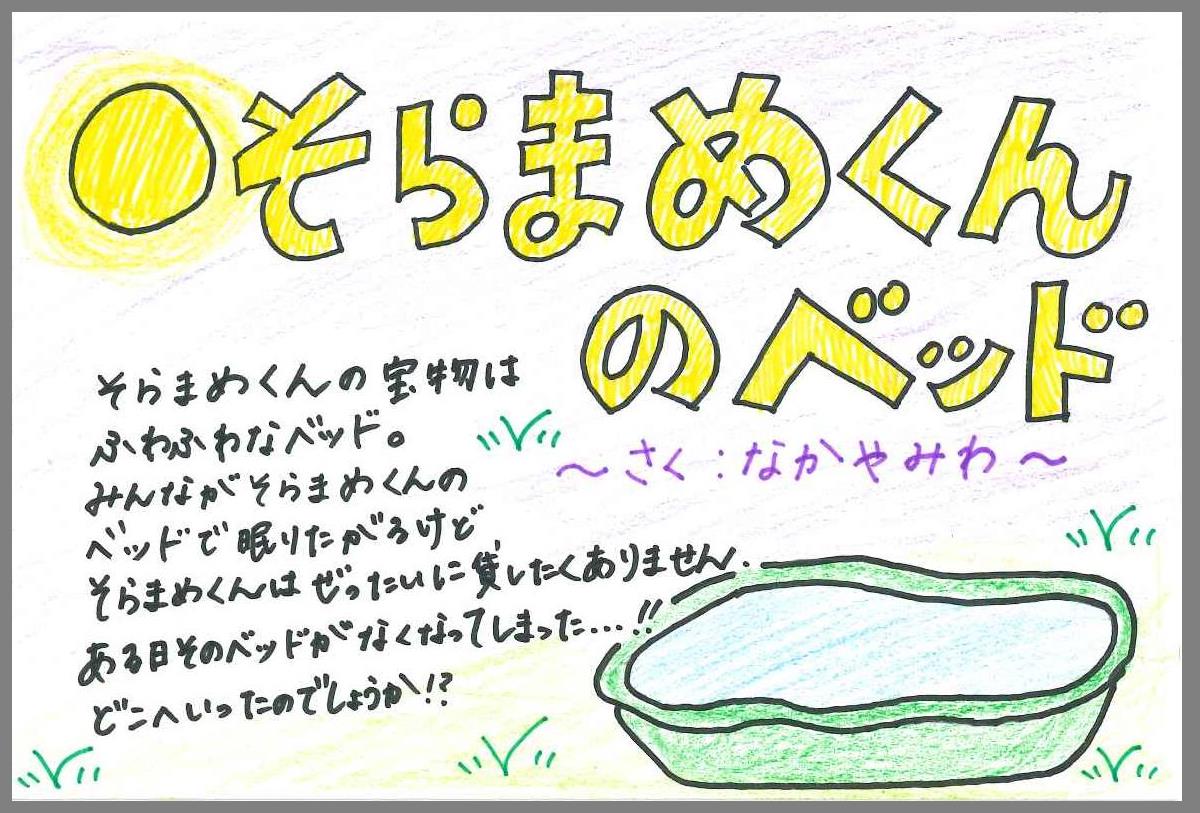 そらまめくん
のベッド
～さく：なかやみわ～
そらまめくんの宝物は
ふわふわなベッド。
みんながそらまめくんの
ベッドで眠りたがるけど、
そらまめくんはぜったいに貸したくありません。
ある日そのベッドがなくなってしまった...!!
どこへいったのでしょうか!?